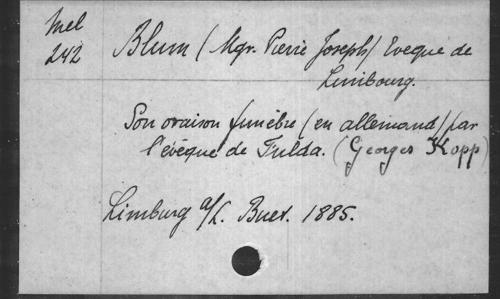 Mel
242
Blum (Mgr. Pierre Joseph) Eveque de
Limbourg.
Son oraison funèbre (en allemand) par
l'évêque de Fulda. (Georges Kopp)
Limburg a/L. Buet. 1885.